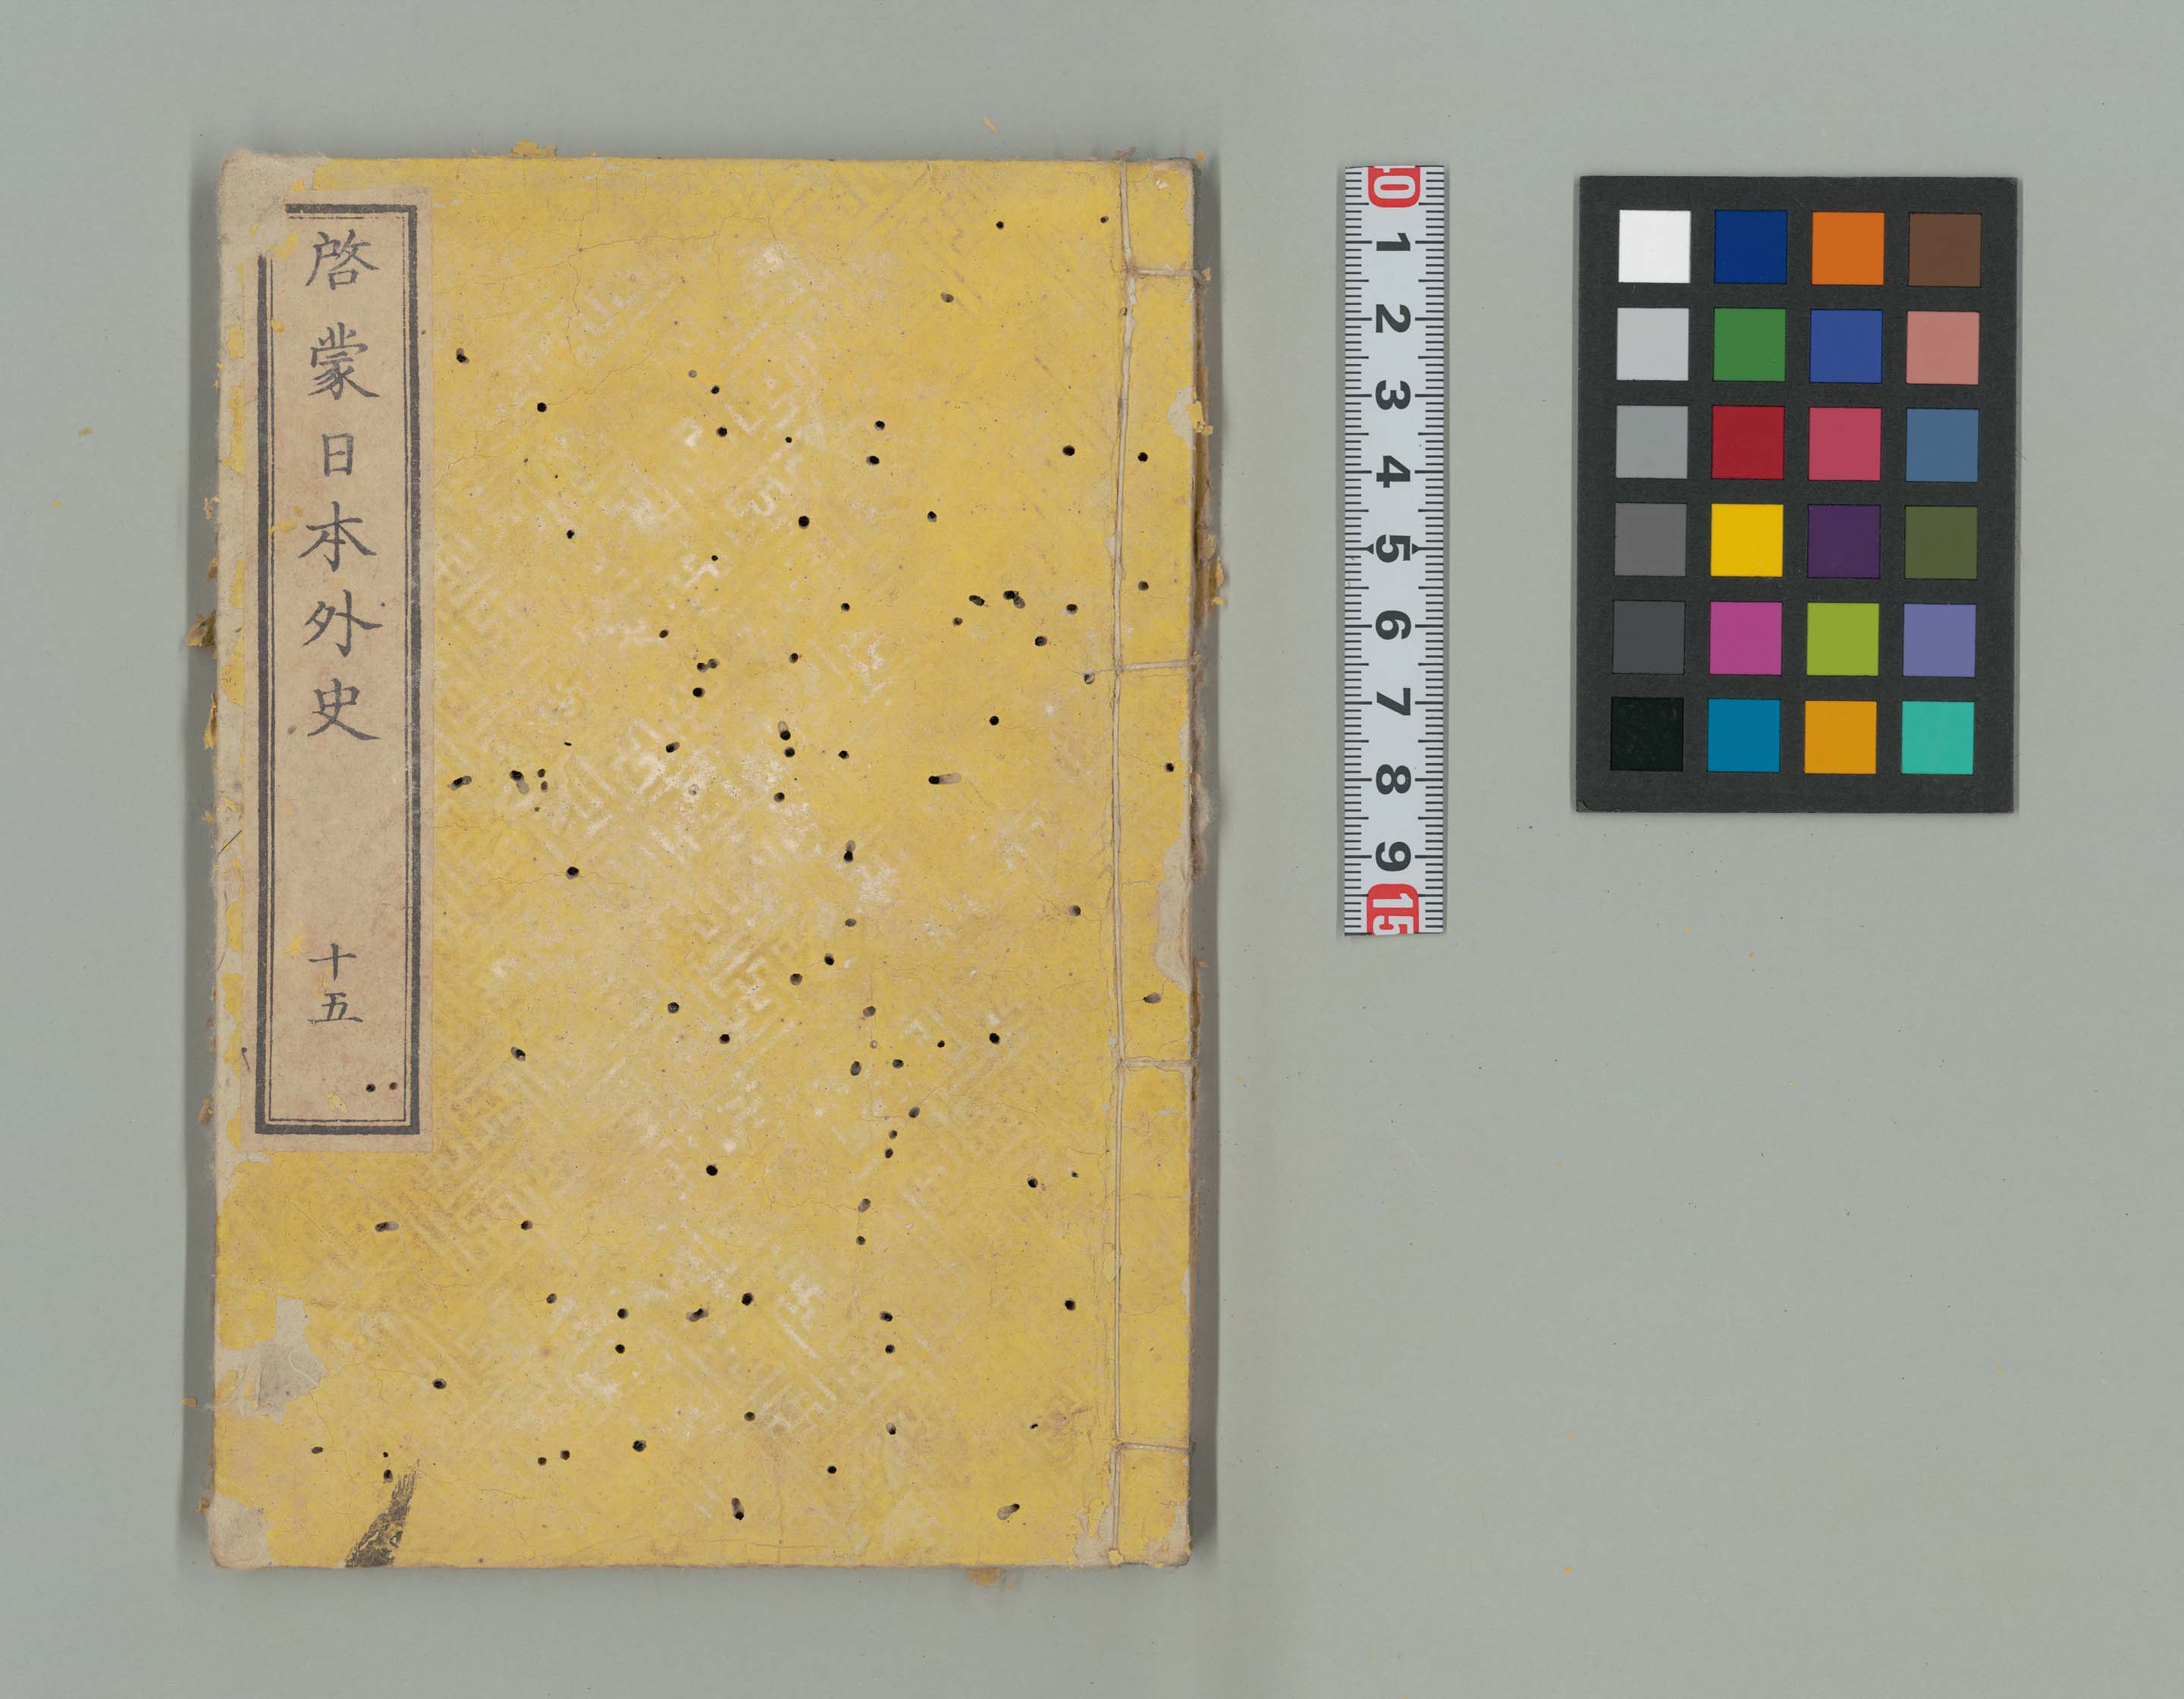 啓蒙日本外史
十五
10
1
2
3
4
5
6
7
8
9
15